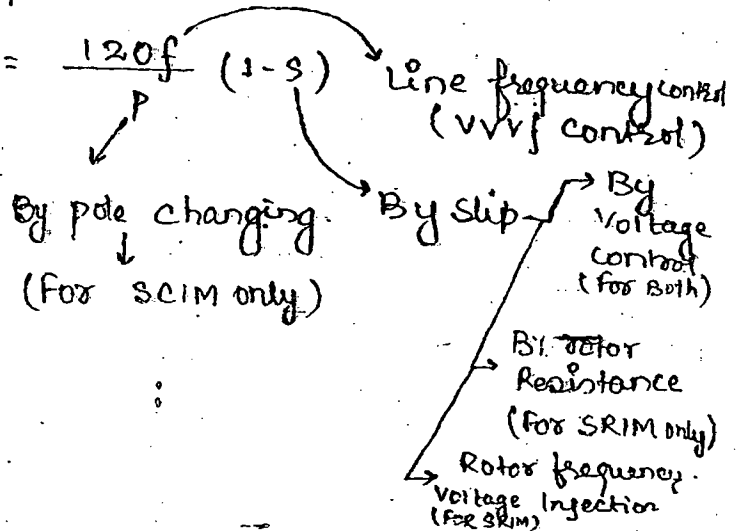 = 120f / P (1-S)
Line frequency control
(VVVf control)
By pole changing.
(For SCIM only)
By Slip
By
Voltage
control
(for Both)
By rotor
Resistance
(For SRIM only)
Rotor frequency.
Voltage Injection
(FOR SRIM)